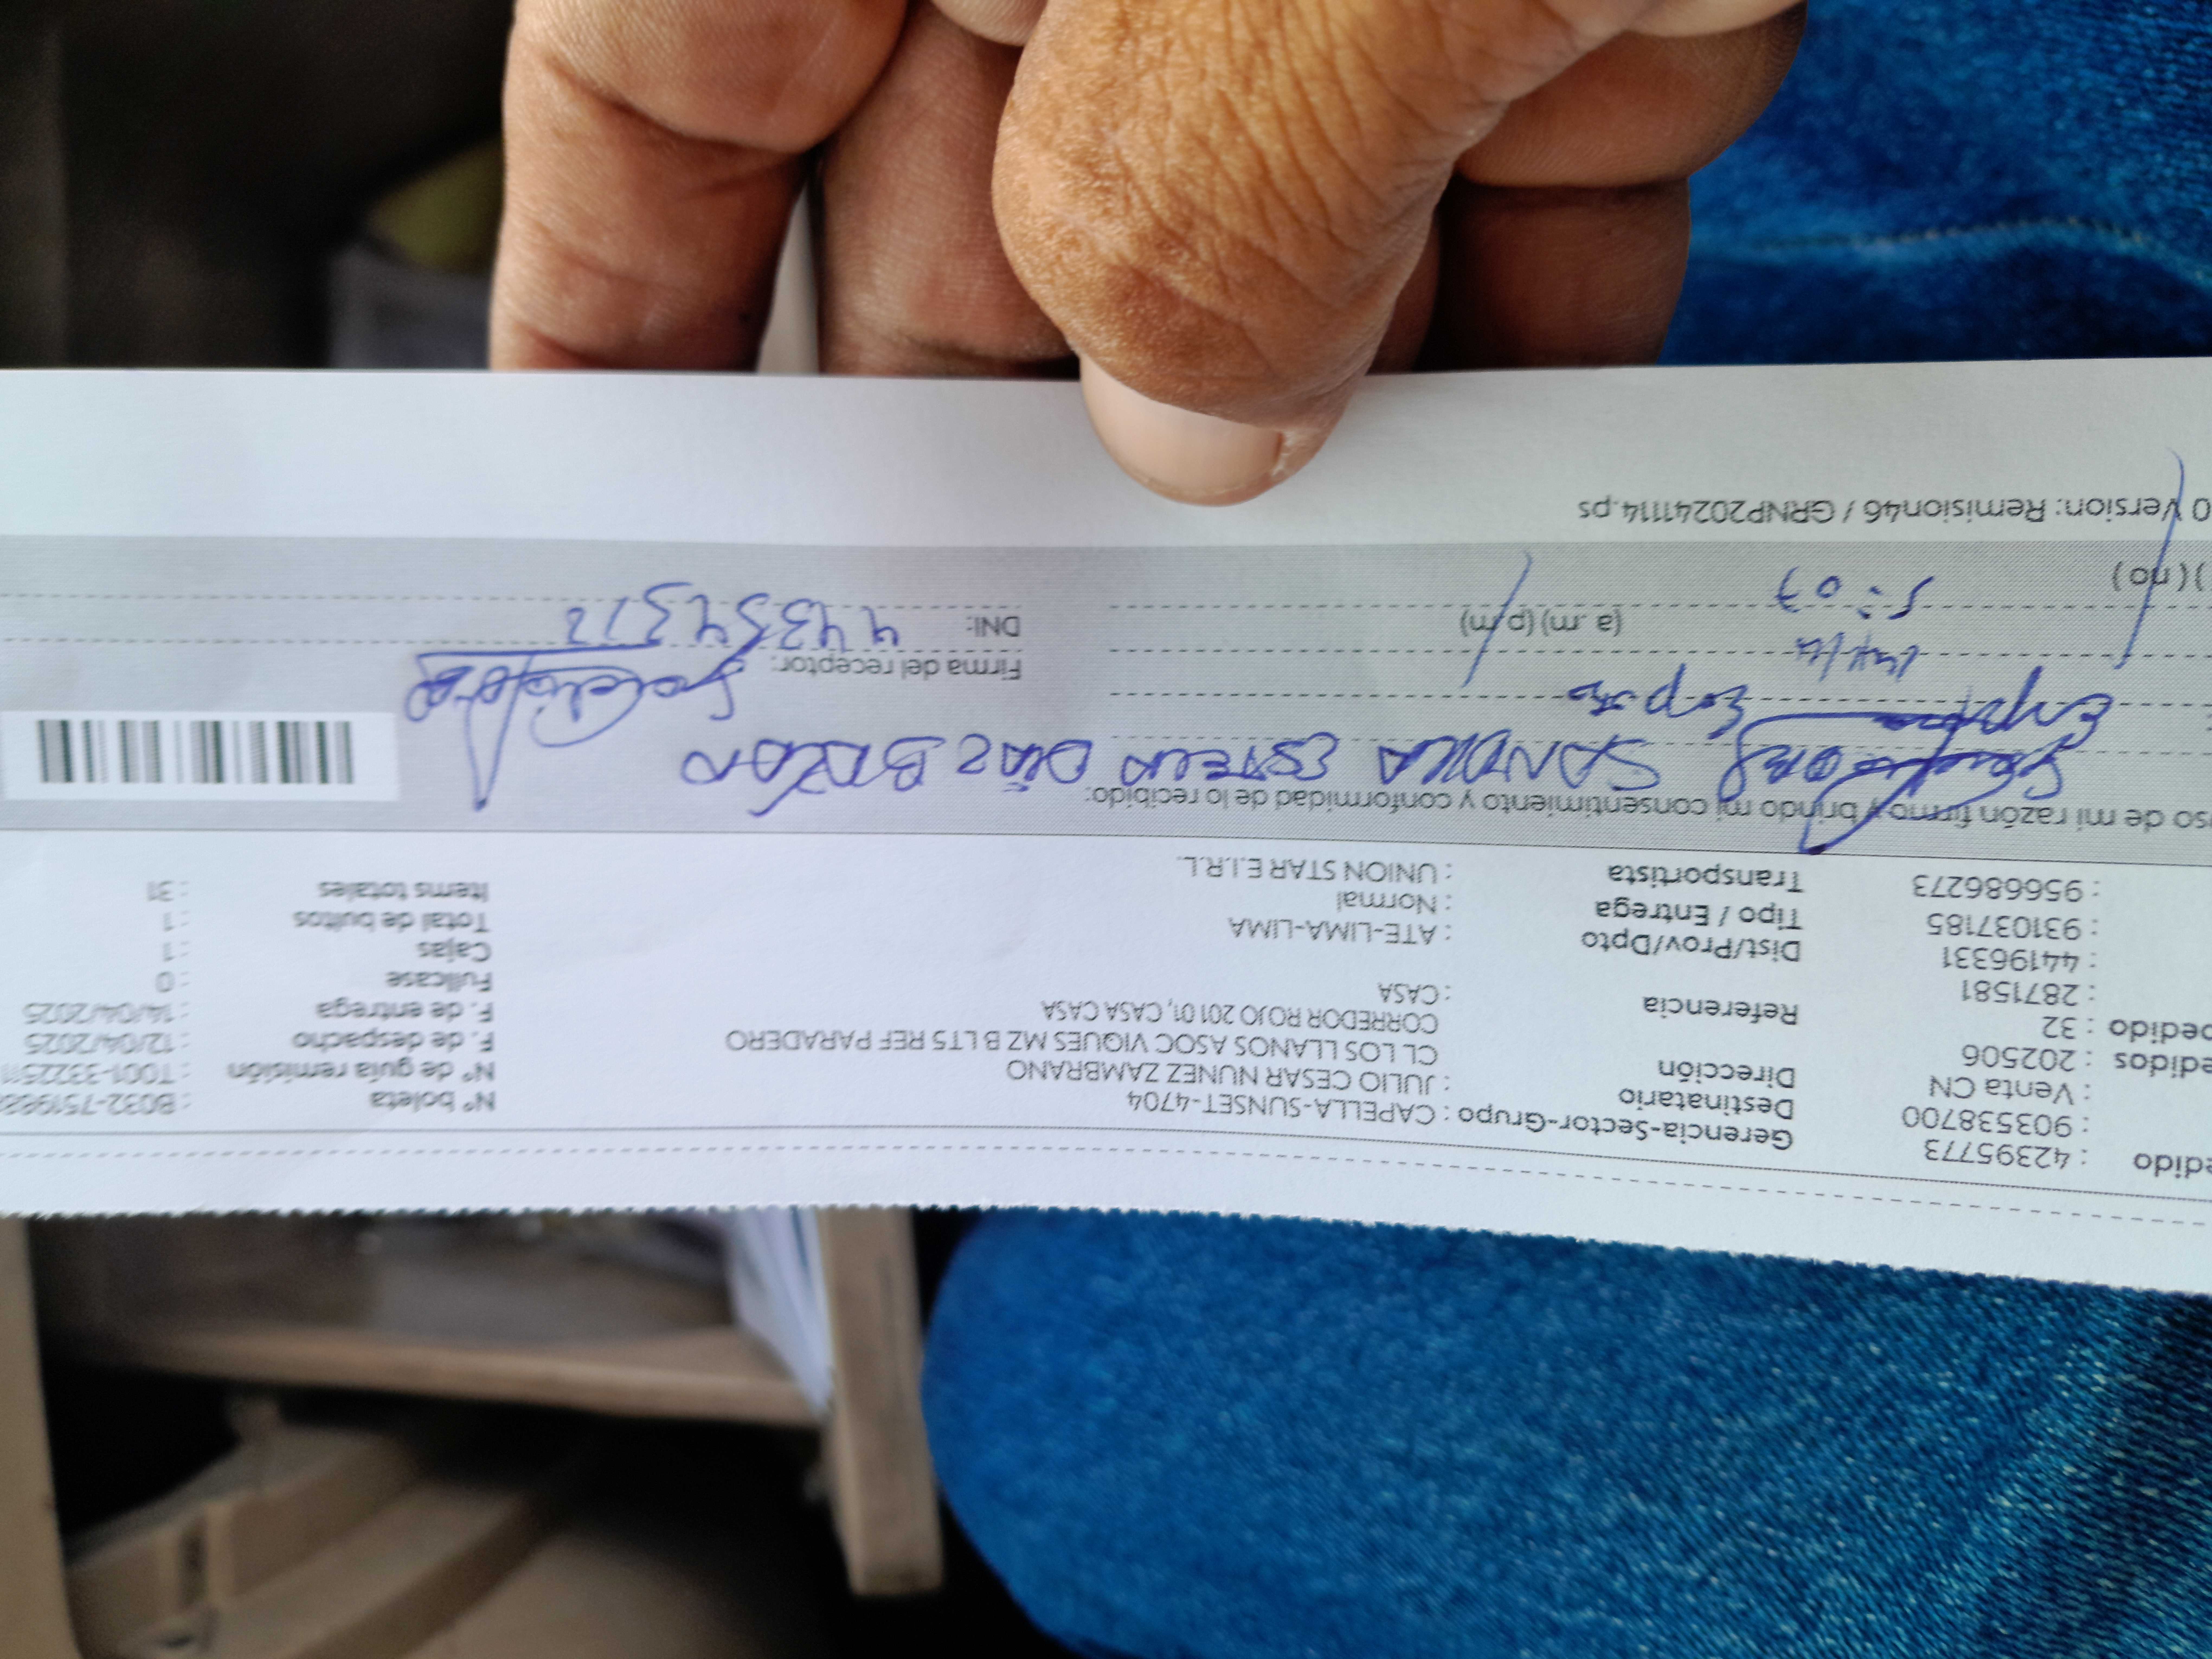 edido : 42395773 Gerencia-Sector-Grupo : CAPELLA-SUNSET-4704 N° boleta : B032-751988
: 903538700 Destinatario : JULIO CESAR NUNEZ ZAMBRANO N° de guía remisión : T001-3322511
: Venta CN Dirección CL LOS LLANOS ASOC VIQUES MZ B LT5 REF PARADERO F. de despacho : 12/04/2025
edidos : 202506 CORREDOR ROJO 201 01, CASA CASA F. de entrega : 14/04/2025
pedido : 32 Referencia : CASA Fullcase : 0
: 2871581 Cajas : 1
: 44196331 Dist/Prov/Dpto : ATE-LIMA-LIMA Total de bultos : 1
: 931037185 Tipo / Entrega : Normal Items totales : 31
: 956686273 Transportista : UNION STAR E.I.R.L.
so de mi razón firmo y brindo mi consentimiento y conformidad de lo recibido:
SANDRA ESTELA DÍAZ BAZÁN
Firma del receptor:
5:07 (a.m) (p.m) DNI: 44354312
) ( no )
0 Version: Remision46 / GRNP20241114.ps